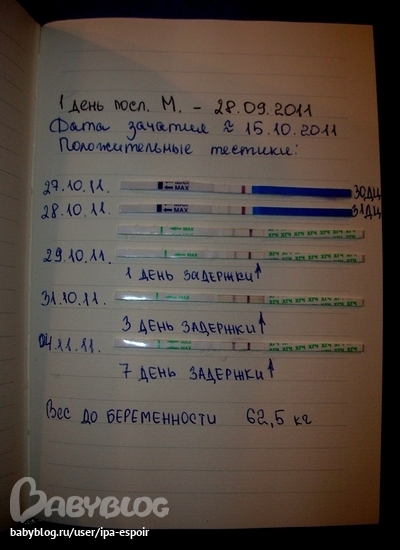 1 день посл. М. - 28.09.2011
Дата зачатия ≈ 15.10.2011
Положительные тестики:
27.10.11. MAX 30ДЦ
28.10.11. MAX 31ДЦ
ХГЧ ХГЧ ХГЧ ХГЧ ХГЧ ХГЧ
29.10.11. ХГЧ ХГЧ ХГЧ ХГЧ ХГЧ ХГЧ
1 ДЕНЬ ЗАДЕРЖКИ ↑
31.10.11. ХГЧ ХГЧ ХГЧ ХГЧ ХГЧ ХГЧ
3 ДЕНЬ ЗАДЕРЖКИ ↑
04.11.11. ХГЧ ХГЧ ХГЧ ХГЧ ХГЧ ХГЧ
7 ДЕНЬ ЗАДЕРЖКИ ↑
ВЕС ДО БЕРЕМЕННОСТИ 62,5 кг
BABYBLOG
babyblog.ru/user/ipa-espoir